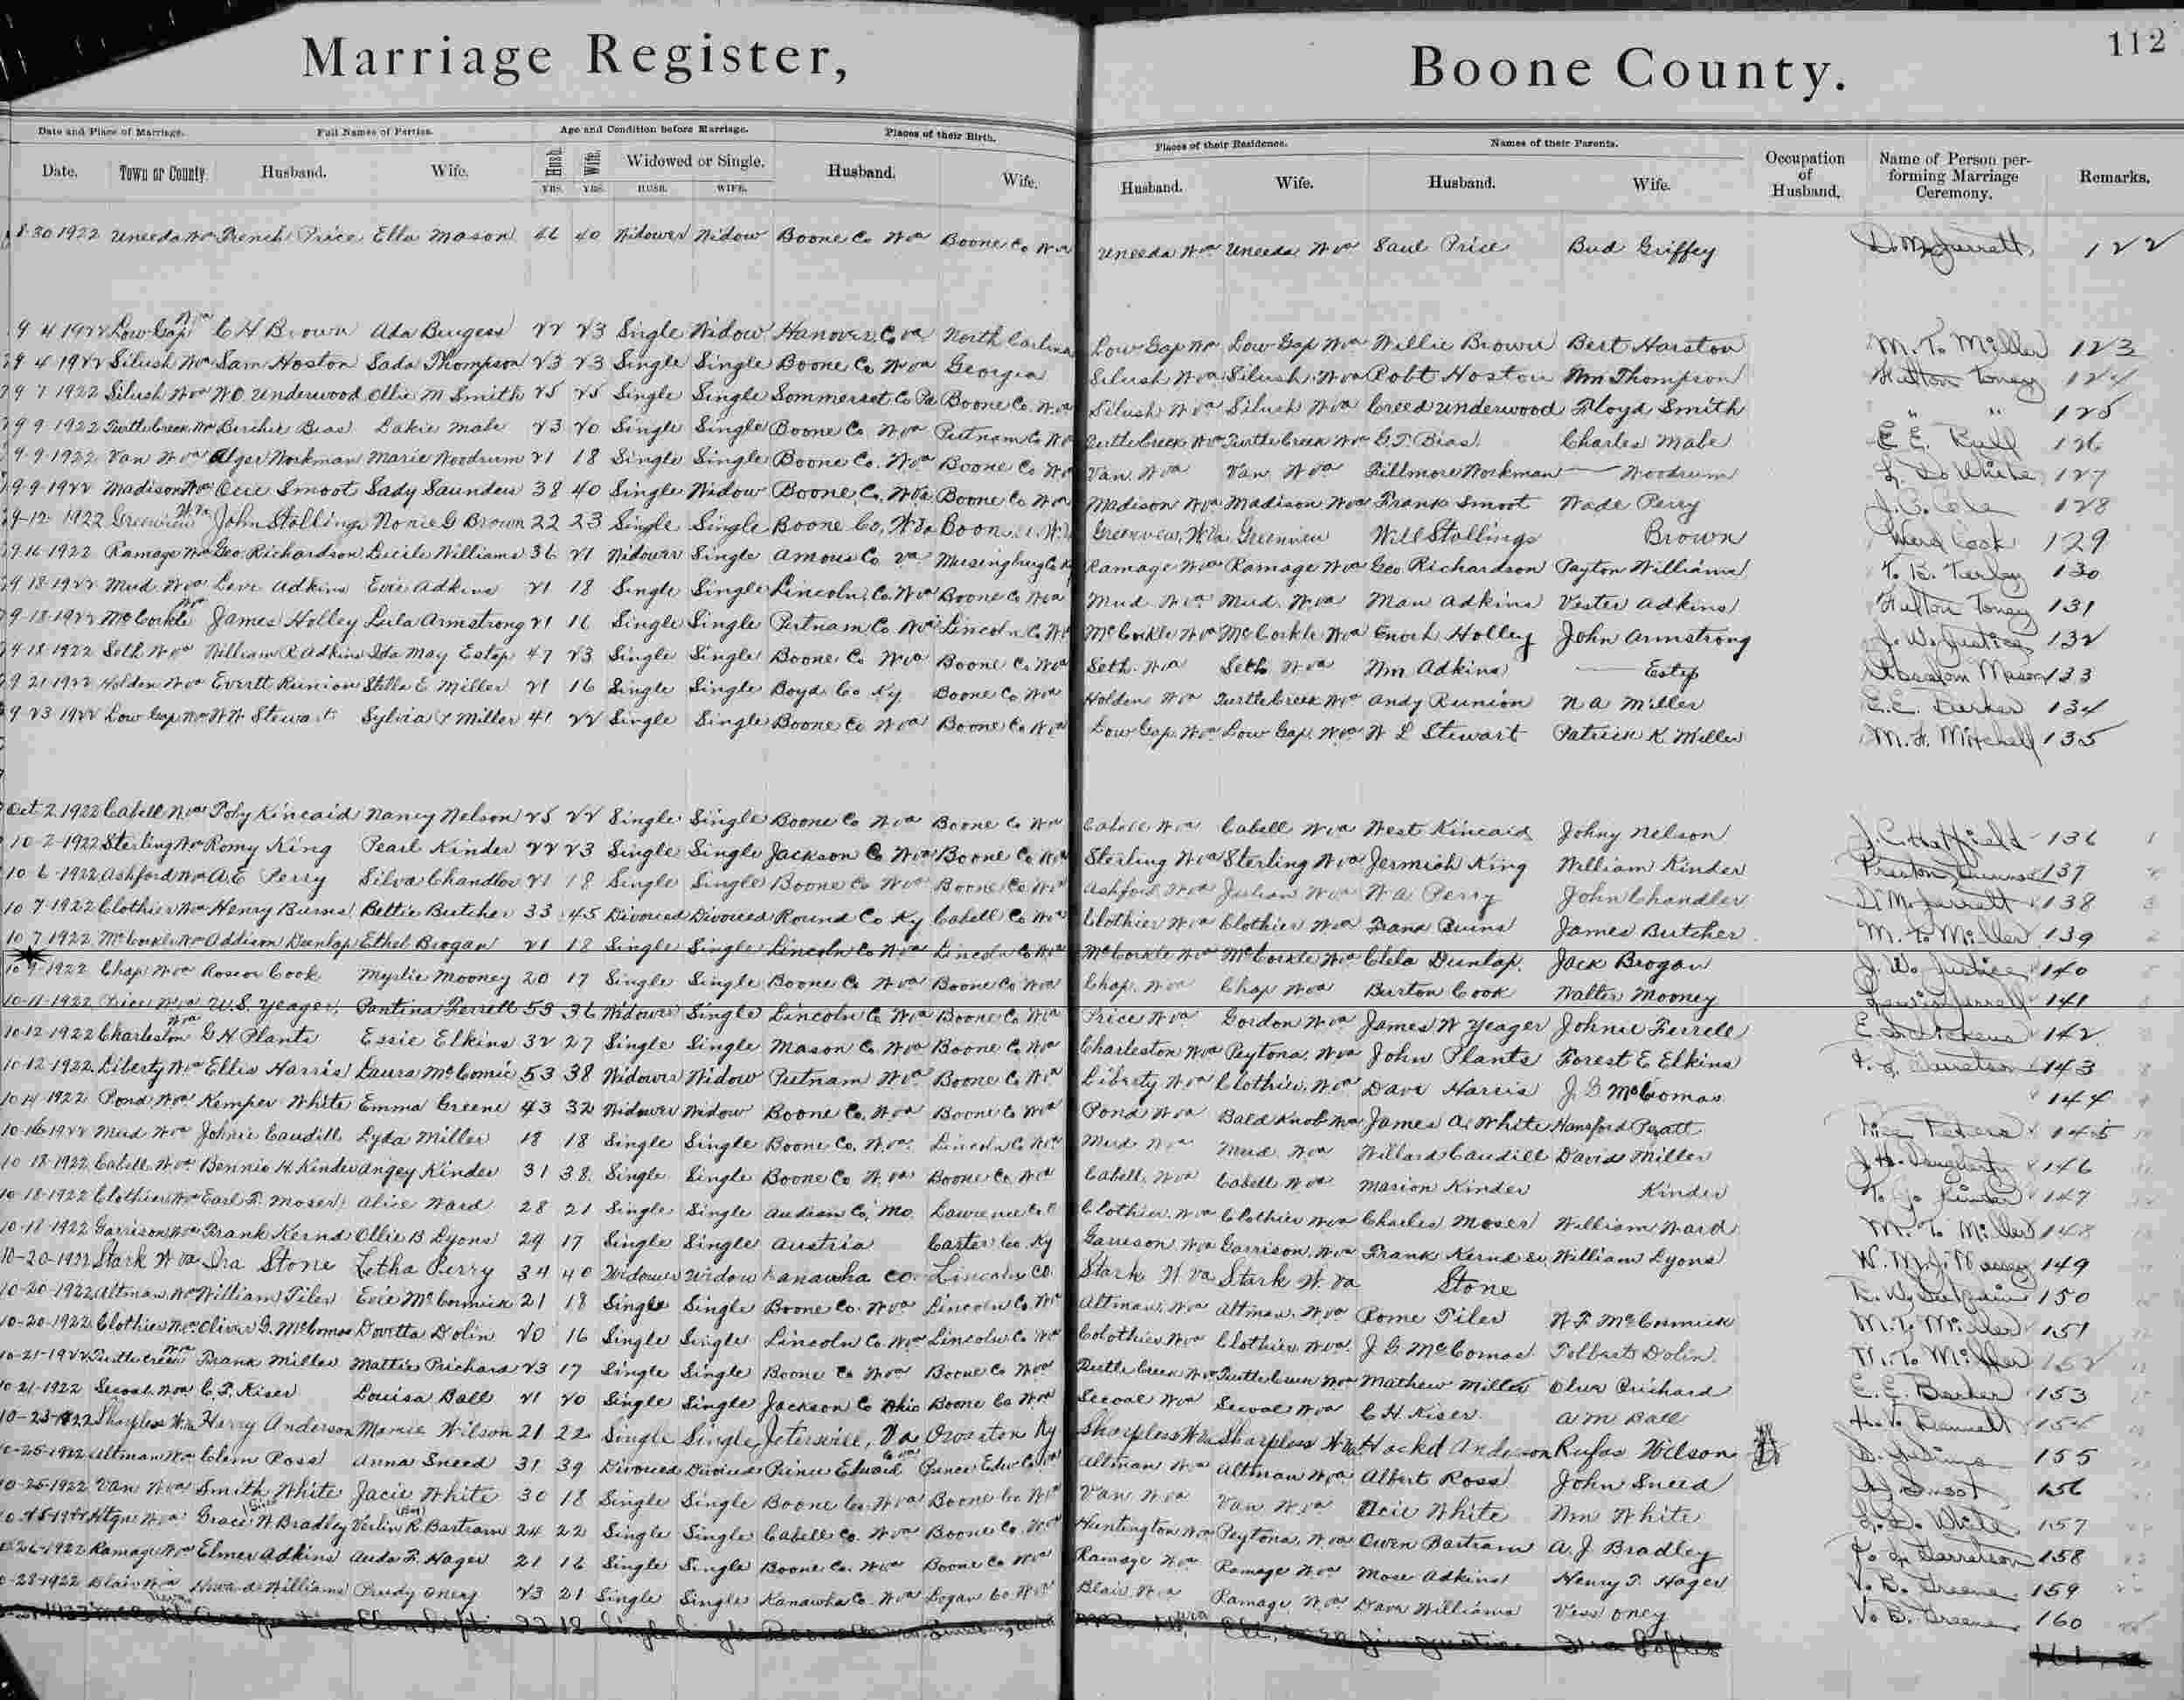 Marriage Register, Boone County. 112
Date and Place of Marriage. Full Names of Parties. Age and Condition before Marriage. Places of their Birth. Places of their Residence. Names of their Parents. Occupation of Husband. Name of Person performing Marriage Ceremony. Remarks.
Date. Town or County. Husband. Wife. Husb. Wife. Widowed or Single. Husband. Wife. Husband. Wife. Husband. Wife.
YRS. YRS. HUSB. WIFE.
8-30 1922 Uneeda Wva French Price Ella Mason 46 40 Widower Widow Boone Co Wva Boone Co Wva Uneeda Wva Uneeda Wva Saul Price Bud Griffey D. M. Jarrett 122
9 4 1922 Low Gap Wva C H Brown Ada Burgess 22 23 Single Widow Hanover Co va North Carlina Low Gap Wva Low Gap Wva Willie Brown Bert Harston M. T. Miller 123
9 4 1922 Silush Wva Sam Hoston Sada Thompson 23 23 Single Single Boone Co Wva Georgia Silush Wva Silush Wva Robt Hoston Wm Thompson Hutton Toney 124
9 7 1922 Silush Wva W O Underwood Ollie M Smith 25 25 Single Single Sommerset Co Pa Boone Co Wva Silush Wva Silush Wva Creed Underwood Floyd Smith " " 125
9 9 1922 Turtle Creek Wva Bircher Bias Lakie Male 23 20 Single Single Boone Co Wva Putnam Co Wva Turtle Creek Wva Turtle Creek Wva G. T. Bias Charles Male E E. 126
9-9-1922 Van Wva Alger Workman Marie Woodrum 21 18 Single Single Boone Co. Wva Boone Co Wva Van Wva Van Wva Fillmore Workman — Woodrum L. D. White 127
9-9 1922 Madison Wva Ocie Smoot Sady Saunders 38 40 Single Widow Boone Co. Wva Boone Co Wva Madison Wva Madison Wva Frank Smoot Wade Perry J. C. Cole 128
9-12 1922 Greenview W.Va John Stollings Nonie G Brown 22 23 Single Single Boone Co, W.Va Boone Co, W. Greenview, W.Va Greenview Will Stollings Brown Ward Cook 129
9.16 1922 Ramage Wva Geo Richardson Lucile Williams 36 21 Widower Single Amous Co va Ramage Wva Ramage Wva Geo Richardson Payton Williams 130
9 18-1922 Mud Wva Levi Adkins Evie Adkins 21 18 Single Single Lincoln Co. Wva Boone Co Wva Mud Wva Mud Wva Man Adkins Vester Adkins Hutton Toney 131
9-18-1922 McCorkle Wva James Holley Lula Armstrong 21 16 Single Single Putnam Co Wva Lincoln Co Wva McCorkle Wva McCorkle Wva Enoch Holley John Armstrong J. W. Justice 132
9 18-1922 Seth Wva William R Adkins Ida May Estep 47 23 Single Single Boone Co Wva Boone Co Wva Seth Wva Seth Wva Wm Adkins — Estep Absalom Mason 133
9 21 1922 Holden Wva Evertt Runion Stella E Miller 21 16 Single Single Boyd Co Ky Boone Co Wva Holden Wva Turtle Creek Wva Andy Runion N A Miller E. E. Barker 134
9 23 1922 Low Gap Wva W W Stewart Sylvia Y Miller 41 22 Single Single Boone Co Wva Boone Co Wva Low Gap Wva Low Gap Wva W L Stewart Patrick K Miller M. F. Mitchell 135
Oct 2 1922 Cabell Wva Toby Kincaid Nancy Nelson 25 22 Single Single Boone Co Wva Boone Co Wva Cabell Wva Cabell Wva West Kincaid Johny Nelson J. C. Hatfield 136
10 2-1922 Sterling Wva Romy King Pearl Kinder 22 23 Single Single Jackson Co Wva Boone Co Wva Sterling Wva Sterling Wva Jermich King William Kinder Preston 137
10 6-1922 Ashford Wva A. E Perry Silva Chandler 21 18 Single Single Boone Co Wva Boone Co Wva Ashford Wva Julian Wva W A Perry John Chandler D. M. Jarrett 138
10 7 1922 Clothier Wva Henry Burns Bettie Butcher 33 45 Divorced Divorced Round Co Ky Cabell Co Wva Clothier Wva Clothier Wva Frank Burns James Butcher M. T. Miller 139
10 7 1922 McCorkle Wva Addison Dunlap Ethel Brogan 21 18 Single Single Lincoln Co Wva Lincoln Co Wva McCorkle Wva McCorkle Wva Clela Dunlap. Jack Brogan J. W. Justice 140
10 9 1922 Chap Wva Roscoe Cook Myrtie Mooney 20 17 Single Single Boone Co Wva Boone Co Wva Chap. Wva Chap Wva Burton Cook Walter Mooney 141
10-11-1922 Price Wva U.S. Yeager, Pantina Ferrell 53 36 Widower Single Lincoln Co Wva Boone Co Wva Price Wva Gordon Wva James W Yeager Johnie Ferrell E. S. Dickens 142
10-12 1922 Charleston Wva G H Plants Essie Elkins 32 27 Single Single Mason Co. Wva Boone Co Wva Charleston Wva Peytona, Wva John Plants Forest E Elkins 143
10-12 1922 Liberty Wva Ellis Harris Laura McComic 53 38 Widower Widow Putnam Wva Boone Co Wva Liberty Wva Clothier, Wva Dave Harris J. B McComas 144
10 14 1922 Pond Wva Kemper White Emma Greene 43 32 Widower Widow Boone Co. Wva Boone Co Wva Pond Wva Bald Knob Wva James A. White Hansford Pratt 145
10-16 1922 Mud Wva Johnie Caudill Lyda Miller 18 18 Single Single Boone Co, Wva Lincoln Co Wva Mud Wva Mud Wva Willard Caudill David Miller 146
10 18-1922 Cabell Wva Bennie H. Kinder Angey Kinder 31 38. Single Single Boone Co Wva Boone Co, Wva Cabell, Wva Cabell Wva Marion Kinder Kinder 147
10-18-1922 Clothier Wva Earl F. Moser Alice Ward 28 21 Single Single Audian Co, Mo. Lawrence Co Clothier. Wva Clothier Wva Charles Moser William Ward M. T. Miller 148
10-18 1922 Garrison Wva Frank Kernd Ollie B Lyons 29 17 Single Single Austria Carter Co Ky Garrison Wva Garrison, Wva Frank Kernd sr, William Lyons W. M. 149
10-20-1922 Stark W Va Ira Stone Letha Perry 34 40 Widower Widow Kanawha Co. Lincoln Co. Stark W Va Stark W. Va Stone 150
10-20 1922 Altman, Wva William Tiler Evie McCormick 21 18 Single Single Boone Co. Wva Lincoln Co. Wva Altman, Wva Altman, Wva Rome Tiler W. F. McCormick M. T. Miller 151
10-20-1922 Clothier Wva Oliver G. McComas Dovetta Dolin 20 16 Single Single Lincoln Co. Wva Lincoln Co Wva Colothier Wva Clothier Wva J. G. McComas Tolbert Dolin. M. T. Miller 152
10-21-1922 Turtle Creek Wva Frank Miller Mattie Prichard 23 17 Single Single Boone Co Wva Boone Co Wva Turtle Creek Wva Turtle Creek Wva Mathew Miller Oliver Prichard E. E. Barker 153
10 21-1922 Secoal Wva C. F. Kiser Louisa Ball 21 20 Single Single Jackson Co Ohio Boone Co Wva Secoal Wva Secoal Wva C H Kiser A M Ball 154
10-23-1922 Sharples W.Va Harry Anderson Marie Wilson 21 22 Single Single Jetersville, Va Sharples W.Va Sharples W.Va Anderson Rufus Wilson 155
10-25-1922 Altman Wva Clem Ross Anna Sneed 31 39 Divorced Divorced Prince Edward Co va Prince Edw Co va Altman Wva Altman Wva Albert Ross John Sneed 156
10-25-1922 Van Wva Smith White Jacie White 30 18 Single Single Boone Co. Wva Boone Co Wva Van Wva Van Wva Acie White Wm White L. D. White 157
10-25-1922 Htgn Wva Grace W Bradley Verlin R. Bartram 24 22 Single Single Cabell Co. Wva Boone Co. Wva Huntington Wva Peytona, Wva Owen Bartram A. J Bradley 158
10-26-1922 Ramage Wva Elmer Adkins Auda F. Hager 21 16 Single Single Boone Co. Wva Boone Co Wva Ramage Wva Ramage Wva Mose Adkins Henry F. Hager V. B. Greene 159
10-28-1922 Blair Wva Howard Williams Prudy Oney 23 21 Single Single Kanawha Co. Wva Logan Co Wva Blair Wva Ramage, Wva Dave Williams Vess Oney V. B. Greene 160